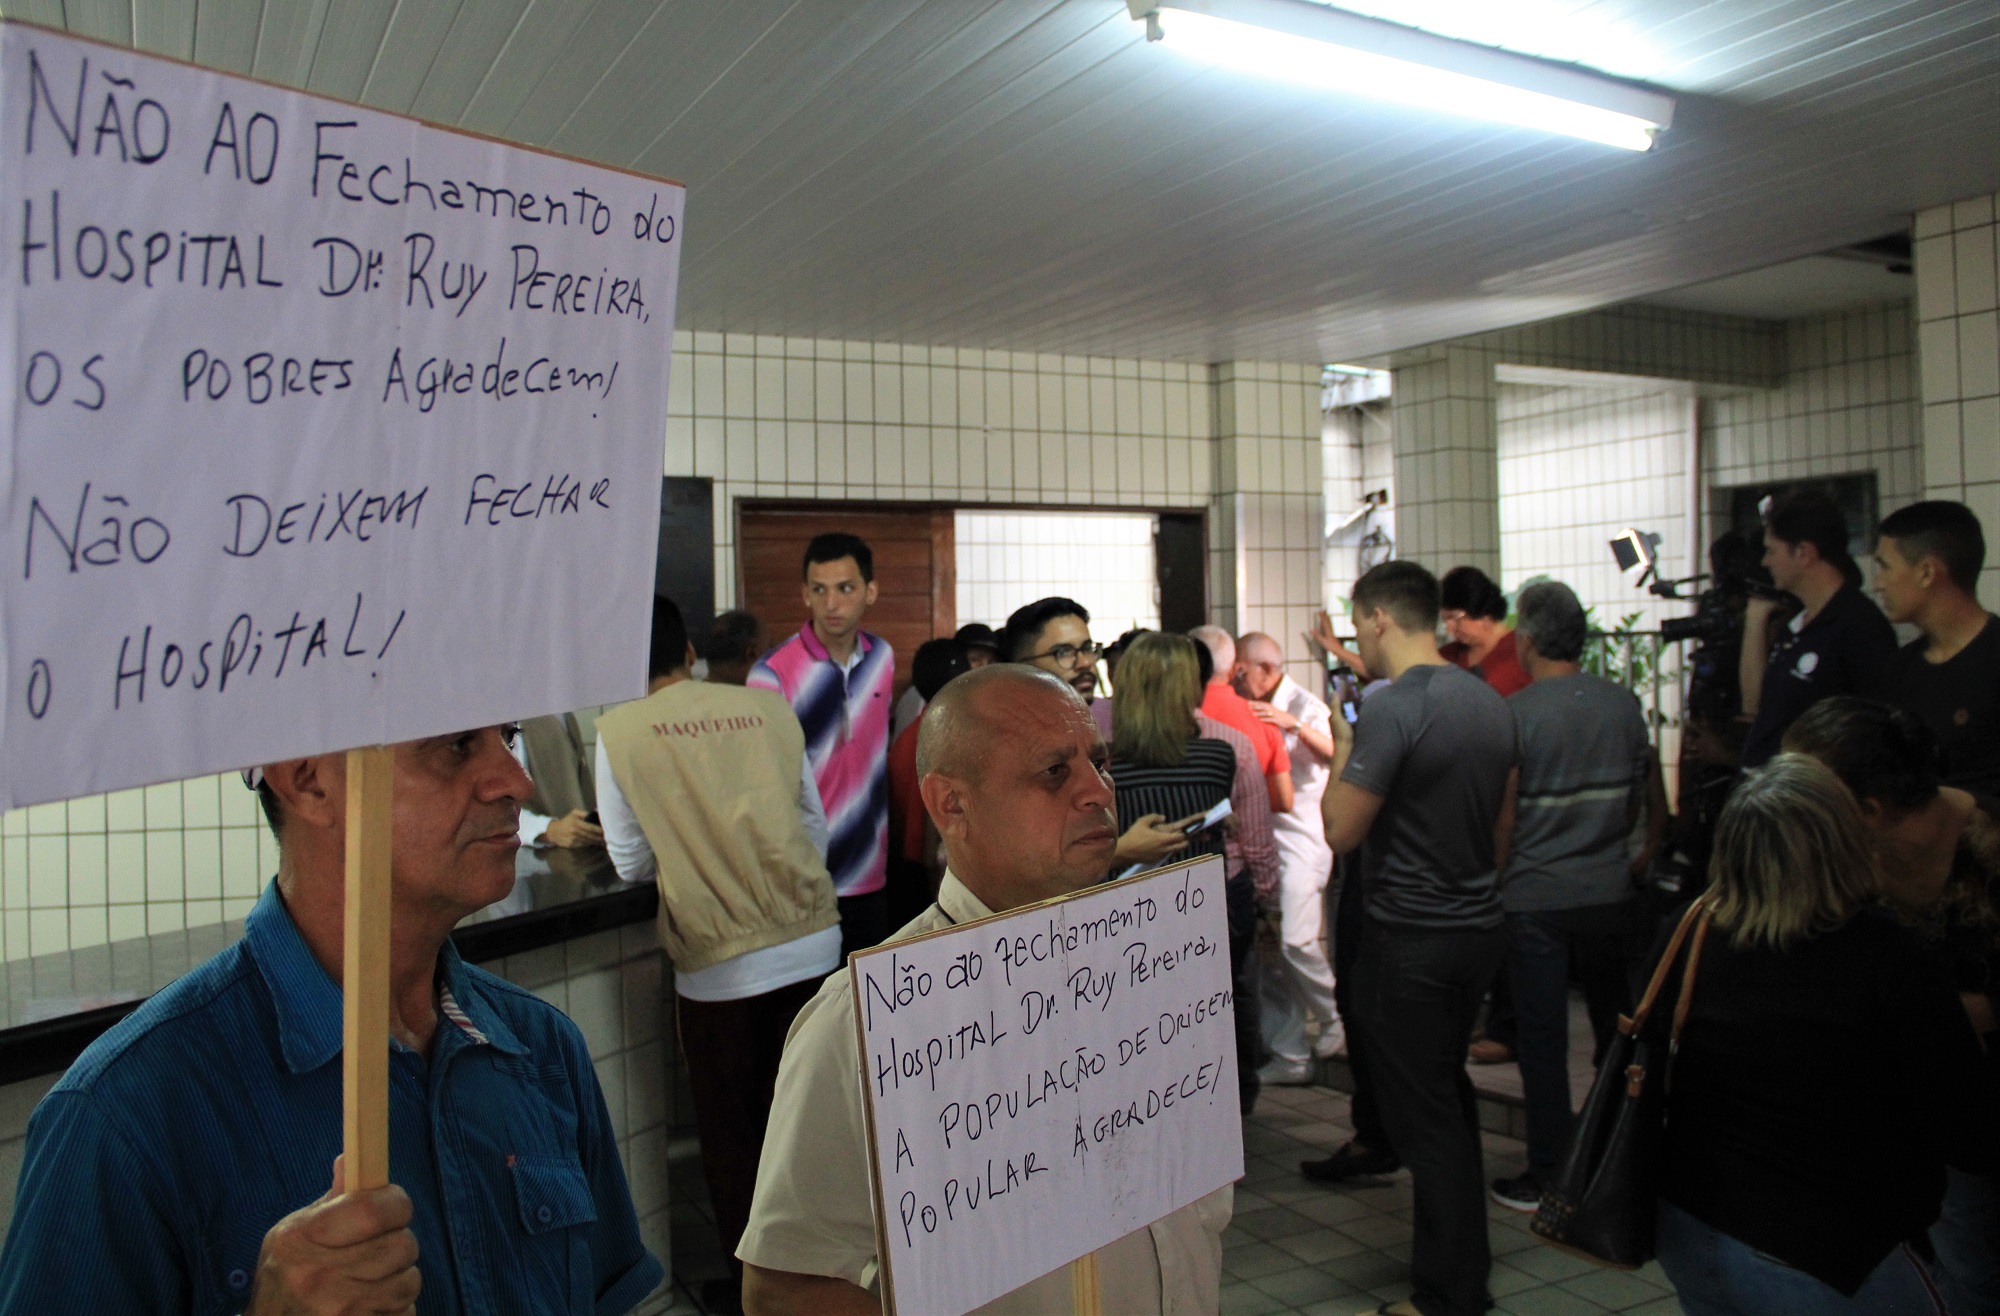 NÃO AO Fechamento do
HOSPITAL Dr. RUY PEREIRA,
OS POBRES AgradeCem!
Não DEIXEM FECHAR
O HOSPITAL!
MAQUEIRO
Não ao fechamento do
HospiTAL Dr. Ruy Pereira,
A POPULAÇÃO DE ORIGEM
POPULAR AGRADECE!